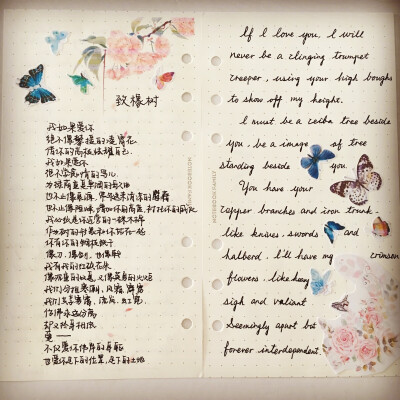 致橡树
我如果爱你
绝不像攀援的凌霄花
借你的高枝炫耀自己
我如果爱你
绝不学痴情的鸟儿
为绿荫重复单调的歌曲
也不止像泉源,常年送来清凉的慰藉
也不止像险峰,增加你的高度,衬托你的威仪
我必须是你近旁的一株木棉
作为树的形象和你站在一起
你有你的铜枝铁干
像刀、像剑、也像戟
我有我的红硕花朵
像沉重的叹息,又像英勇的火炬
我们分担寒潮、风雷、霹雳
我们共享雾霭、流岚、虹霓
仿佛永远分离
却又终身相依
爱——
不仅爱你伟岸的身躯
也爱你足下的位置,足下的土地
If I love you, I will
never be a clinging trumpet
creeper, using your high boughs
to show off my height.
I must be a ceiba tree beside
you, be a image of tree
standing beside you.
You have your
copper branches and iron trunk.
like knives, swords and
halberd, I'll have my crimson
flowers, like heavy
sigh and valiant
Seemingly apart but
forever interdependent.